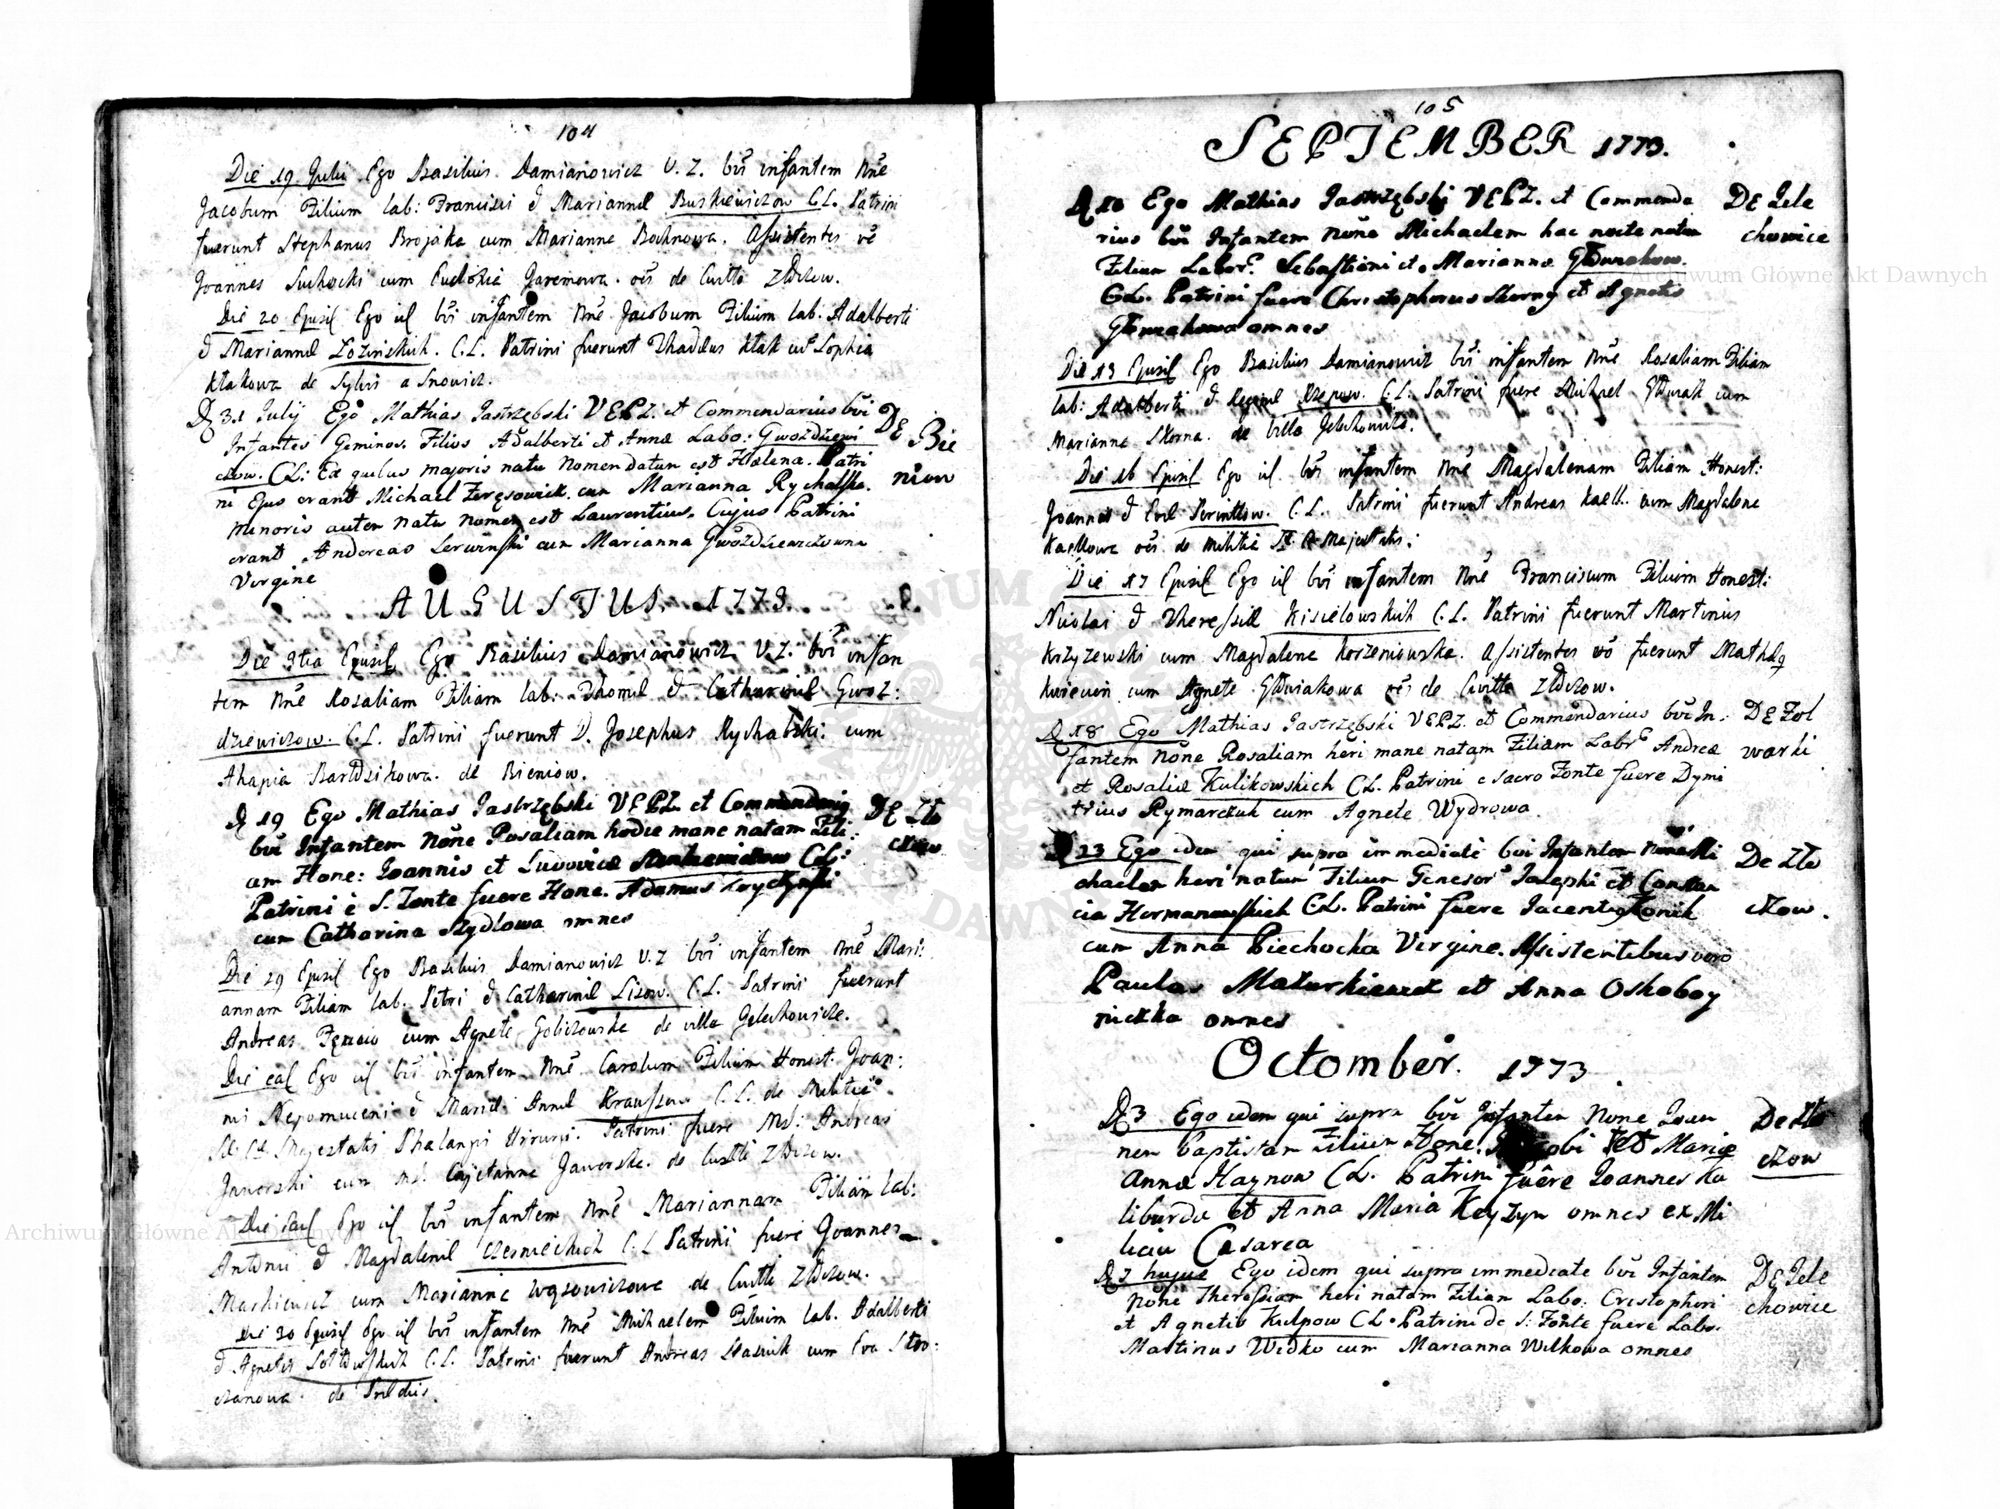 104
Die 19 Julii Ego Basilius Damianowicz V. Z. bti infantem Nne
Jacobum Filium lab: Francisci & Mariannæ Buskiewiczow C.L. Patrini
fuerunt Stephanus Brojaka cum Marianna Bochnowa. Assistentes vė
Joannes Suchocki cum Eudokia Jaremowa. oēs de Civitte Złoczow.
Die 20 Ejusd Ego id bti infantem Nnē Jacobum Filium lab. Adalberti
& Mariannæ Łozinskich. C.L. Patrini fuerunt Thaddæus Kłak cū Sophia
Kłakowa de Sylvis a Snowicz.
D 31 July Ego Mathias Jastrzębski VEPZ. et Commendarius bvi
Infantes Geminos Filios Adalberti et Annæ Labo: Gwozdziewi
czow. CL: Ex quibus majoris natu Nomen datum est Helena. Patri
ni Ejus erant Michael cum Marianna Rychalska.
Minoris autem natu nomen est Laurentius. Cujus Patrini
erant Andreas Serwinski cum Marianna Gwozdziewiczowna
Virgine
DE Bie
niow
AUGUSTUS. 1773.
Die Ejusd Ego Basilius Damianowicz V.Z. bti infan
tem Nnē Rosaliam Filiam lab: Thomæ & Catharinæ Gwoz:
dziewiczow. C.L. Patrini fuerunt D. Josephus Rychalski: cum
Ahapia Bardzikowa. de Bieniow.
D 19 Ego Mathias Jastrzębski VEPZ et Commendarig
bvi Infantem None Rosaliam hodie mane natam Fili:
am Hone: Joannis et Ludovicæ CL:
Patrini e S. Fonte fuere Hone. Adamus
cum Catharina Szydlowa omnes
DE Zło
czow
Die 29 Ejusd Ego Basilius Damianowicz V.Z bti infantem Nnē Mari:
annam Filiam lab. Petri & Catharinæ Lisow. C.L. Patrini fuerunt
Andreas cum Agnete Golizowska de villa Jelechowicze.
Die ead Ego id bti infantem Nnē Carolum Filium Honest. Joan:
nis Nepomuceni & Mariæ Annæ Kraussow C.L. de Militiæ
Majestatis Phalangis Patrini fuere Md: Andreas
Jaworski cum Md: Cajetanna Jaworska. de Civitte Złoczow.
Die ead Ego id bti infantem Nnē Mariannam Filiam lab:
Antonii & Magdalenæ Czesnieckich C.L Patrini fuere Joannes
Maskiewicz cum Marianne Wąsowiczowa de Civitte Złoczow.
Die 30 Ejusd Ego id bti infantem Nnē Michaelem Filium lab. Adalberti
& Agnetis C.L. Patrini fuerunt Andreas Stasiuk cum Eva
czanowa. de Prædiis.
105
SEPTEMBER 1773.
D 10 Ego Mathias Jastrzębski VEPZ. et Commenda
rius bvi Infantem None Michaelem hac nocte natum
Filium Labor. Sebastiani et Mariannæ Głowakow.
CL. Patrini fuere Christophorus Skorny et Agnetis
Głowakowa omnes
DE Jele
chowice
Die 13 Ejusd Ego Basilius Damianowicz bti infantem Nnē Rosaliam Filiam
lab: Adalberti & Reginæ Rzepow. C.L. Patrini fuere Michael Głowak cum
Marianna Skorna. de Villa Jelechowicze.
Die 16 Ejusd Ego id. bti infantem Nnē Magdalenam Filiam Honest:
Joannis & Evæ C.L. Patrini fuerunt Andreas cum Magdalena
oēs de Militia Majestatis.
Die 17 Ejusd Ego id bti infantem Nnē Franciscum Filium Honest:
Nicolai & Theressiæ Kisielowskich C.L. Patrini fuerunt Martinus
Krzyzewski cum Magdalena Korzeniowska. Assistentes vō fuerunt Mathæg
Kwiecien cum Agnete Głowakowa oēs de Civitte Złoczow.
D 18 Ego Mathias Jastrzębski VEPZ. et Commendarius bvi In-
fantem None Rosaliam heri mane natam Filiam Labr Andreæ
et Rosaliæ Kulikowskich CL. Patrini e sacro Fonte fuere Dymi
trius Rymarczuk cum Agnete Wydrowa.
DE Fol
warki
D 23 Ego idem qui supra immediate bvi Infantem None Mi
chaelem heri natum Filium Generor Josephi et Constan
cia Hermanowskich CL. Patrini fuere
cum Anna Piechocka Virgine. Assistentibus vero
Paulo Maturkiewicz et Anna Oskoboy
niczka omnes
De Zło
czow.
Octomber. 1773
D 3 Ego idem qui supra bvi Infantem None Joan
nem baptistam Filium Hone. Jacobi et Mariæ
Annæ Haynow CL. Patrini fuere Joannes Ka
liburda et Anna Maria Keyzyn omnes ex Mi
licia Cæsarea
De Zło
czow
D 7 hujus Ego idem qui supra immediate bvi Infantem
None Theressiam heri natam Filiam Labo: Cristopheri
et Agnetis Kulpow CL. Patrini de S: Fonte fuere Labo.
Martinus Widko cum Marianna Wilkowa omnes
DE Jele
chowice
Archiwum Główne Akt Dawnych
Archiwum Główne Akt Dawnych